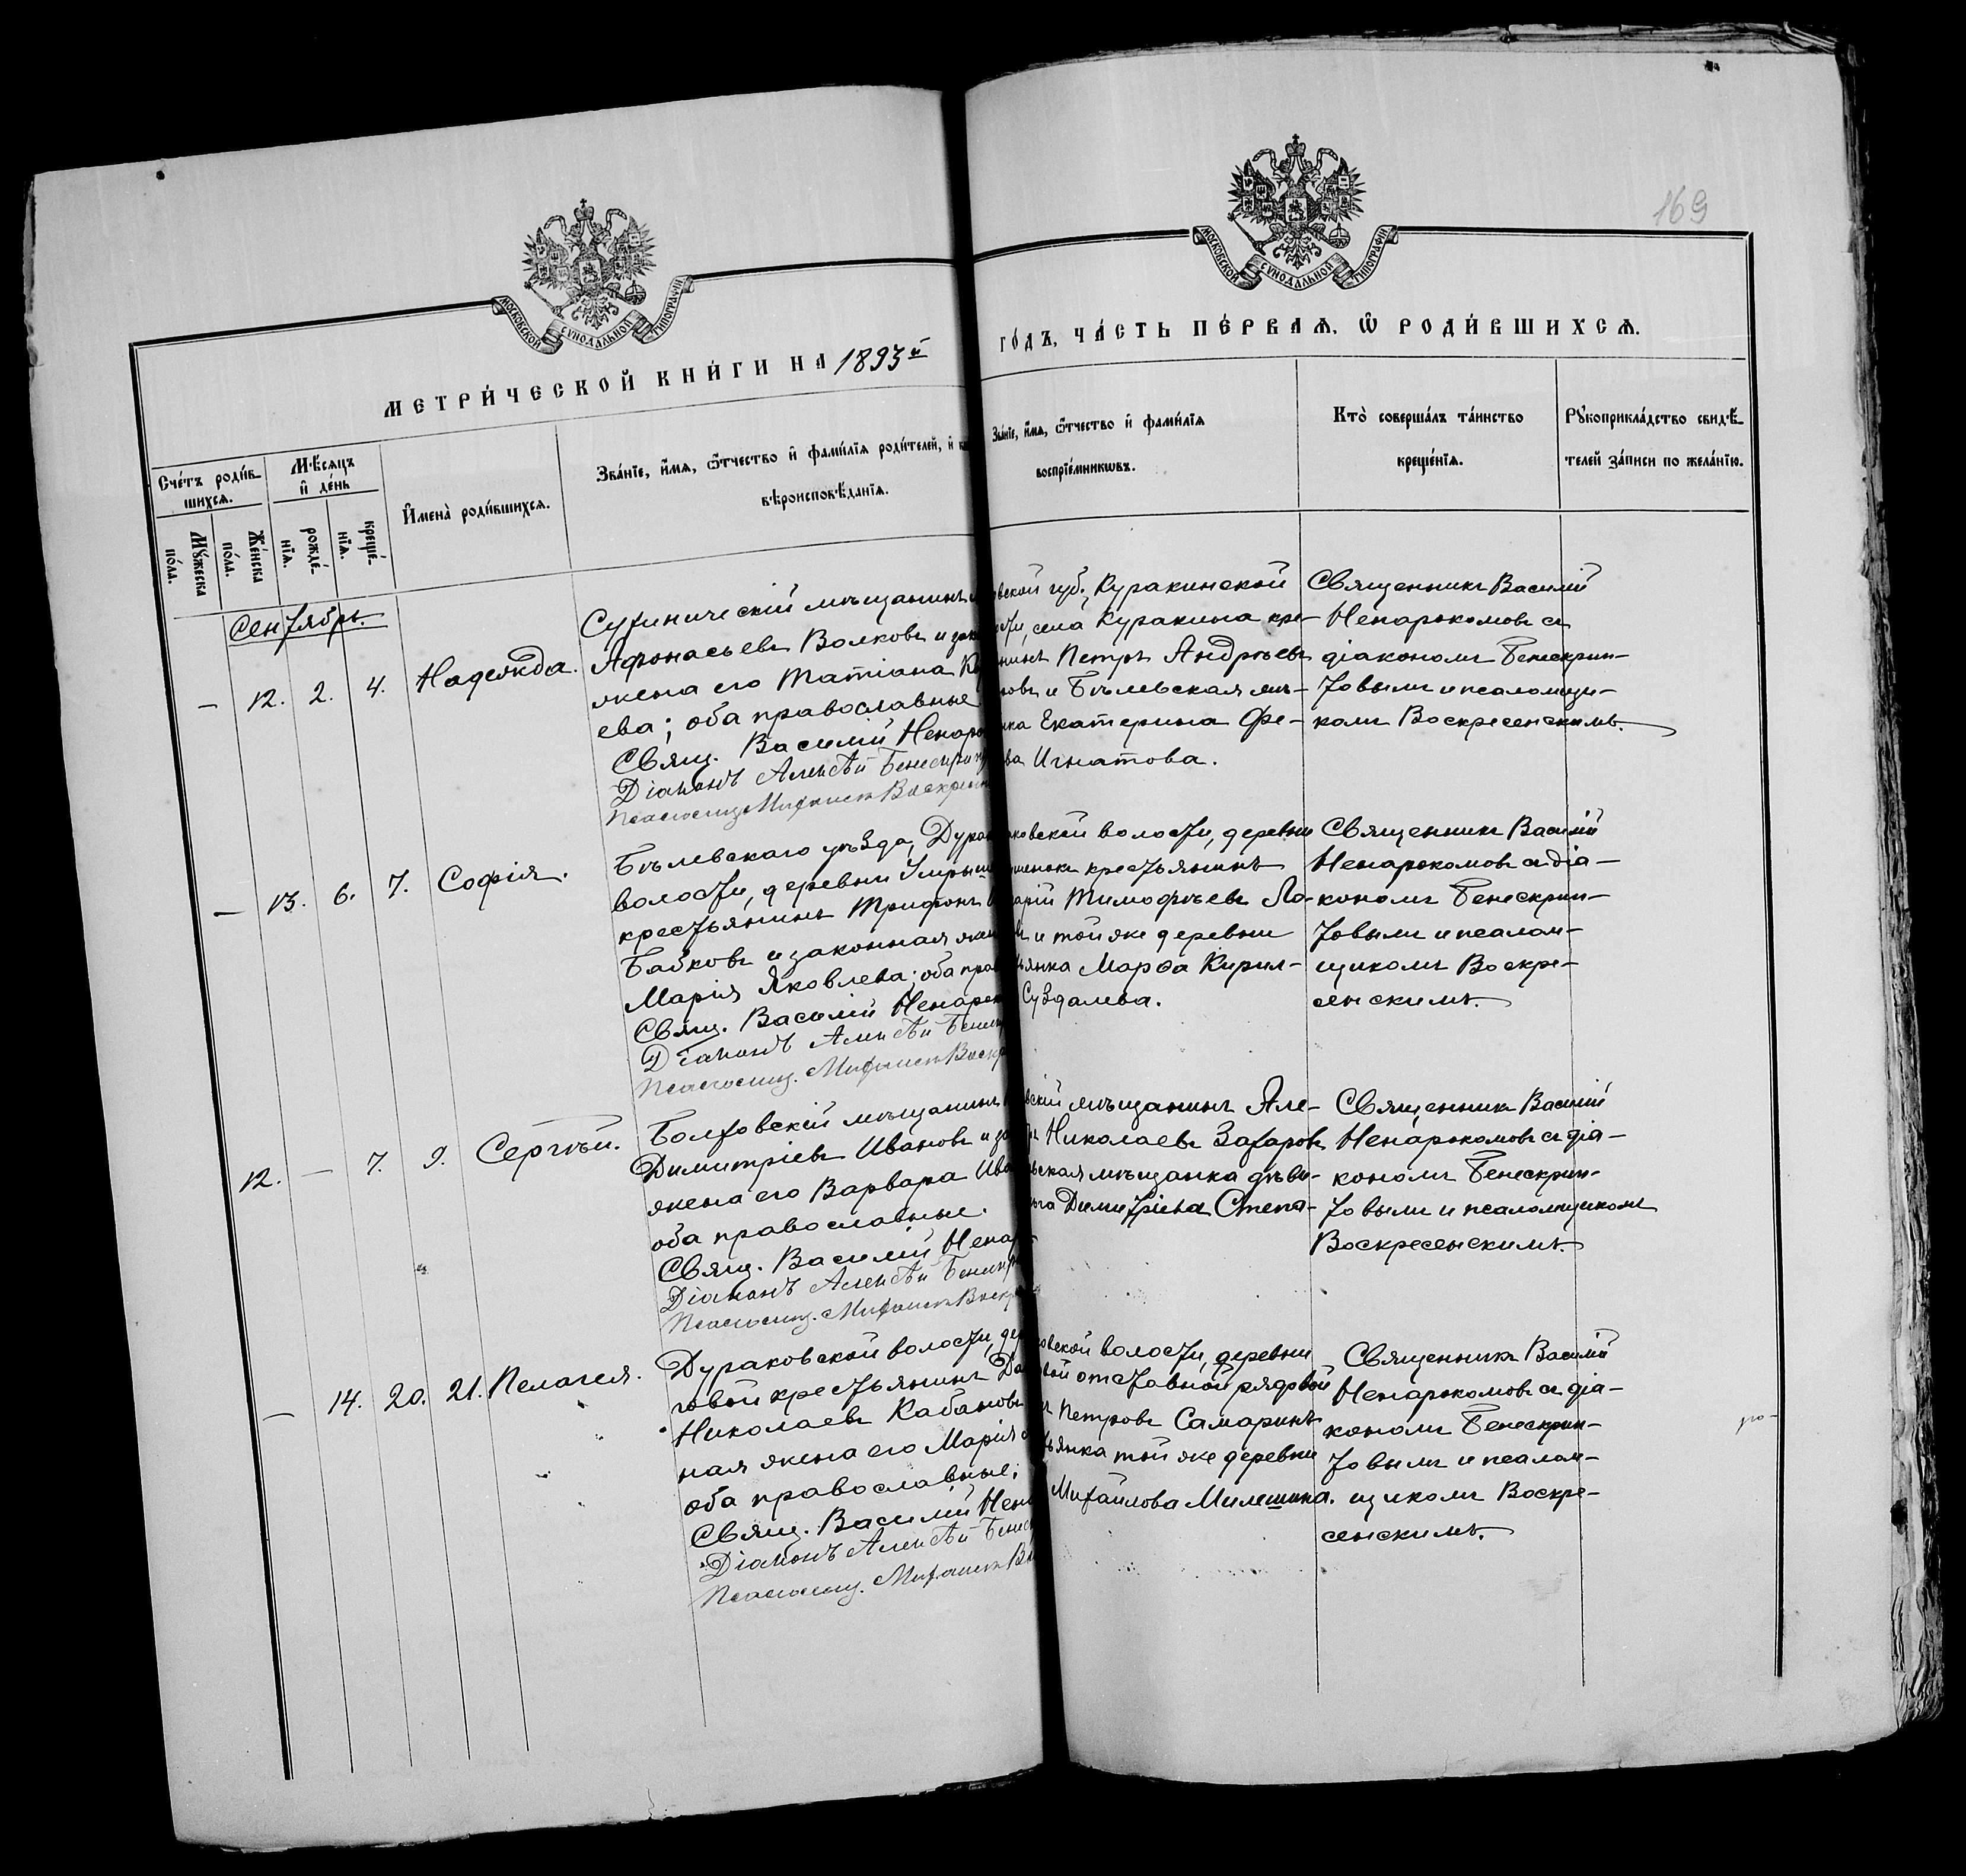 169
МОСКОВСКОЙ СУНОДАЛЬНОЙ ТИПОГРАФІИ
МОСКОВСКОЙ СУНОДАЛЬНОЙ ТИПОГРАФІИ
МЕТРИ́ЧЕСКОЙ КНИ́ГИ НА 1893й
ГО́ДЪ, ЧА́СТЬ ПЕ́РВАѦ, Ѽ РОДИ́ВШИХСѦ.
Сче́тъ роди́в-
шихсѧ.
Мꙋ́жеска
по́ла.
Же́нска
по́ла.
Мѣ́сѧцъ
и҆ де́нь
рожде́-
нїѧ.
креще́-
нїѧ.
И҆мена̀ роди́вшихсѧ.
Зва́нїе, и҆́мѧ, ѻ҆́тчество и҆ фами́лїѧ роди́телей, и҆
вѣроисповѣ́данїѧ.
Зва́нїе, и҆́мѧ, ѻ҆́тчество и҆ фами́лїѧ
воспрїе́мникѡвъ.
Кто̀ соверша́лъ та́инство
креще́нїѧ.
Рꙋкоприкла́дство свидѣ́-
телей за́писи по жела́нїю.
Сентябрь.
— 12. 2. 4. Надежда.
Сухиническій мѣщанинъ
Афонасьевъ Волковъ и зак
жена его Татіана К
ева; оба православные
Свящ. Василій Ненаро
Діаконъ Алексѣй Бенескрип
Псаломщ. Митрофанъ Воскресен
вской губ., Куракинской
сти, села Куракина кре-
нинъ Петръ Андреевъ
новъ и Бѣлевская мѣ-
нка Екатерина Фе-
ва Игнатова.
Священникъ Василій
Ненарокомовъ съ
діакономъ Бенескрип-
товымъ и псаломщи-
комъ Воскресенскимъ.
— 13. 6. 7. Софія.
Бѣлевскаго уѣзда, Дурак
волости, деревни
крестьянинъ Трифонъ
Бабковъ и законная жен
Марія Яковлева; оба прав
Свящ. Василій Ненарок
Діаконъ Алексѣй Бенеск
Псаломщ. Воскр
ковской волости, деревни
крестьянинъ
арій Тимофѣевъ Ло-
въ и той же деревни
янка Марфа Кирил-
Суздалева.
Священникъ Василій
Ненарокомовъ съ діа-
кономъ Бенескрип-
товымъ и псалом-
щикомъ Воскре-
сенскимъ.
12. — 7. 9. Сергѣй.
Болховскій мѣщанинъ
Димитріевъ Ивановъ и за
жена его Варвара Ива
оба православные.
Свящ. Василій Нена
Діаконъ Алексѣй Бенескр
Псаломщ. Воскр
вскій мѣщанинъ Але-
Николаевъ Захаровъ
вская мѣщанка дѣви-
ьга Димитріева Степа-
Священникъ Василій
Ненарокомовъ съ діа-
кономъ Бенескрип-
товымъ и псаломщикомъ
Воскресенскимъ.
— 14. 20. 21. Пелагея.
Дураковской волости, дер
говой крестьянинъ Да
Николаевъ Кабановъ
ная жена его Марія
оба православные;
Свящ. Василій Нен
Діаконъ Алексѣй Бенес
Псаломщ. В
овской волости, деревни
вой отставной рядовой
Петровъ Самаринъ
ьянка той же деревни
Михайлова Милешина.
Священникъ Василій
Ненарокомовъ съ діа-
кономъ Бенескрип-
товымъ и псалом-
щикомъ Воскре-
сенскимъ.